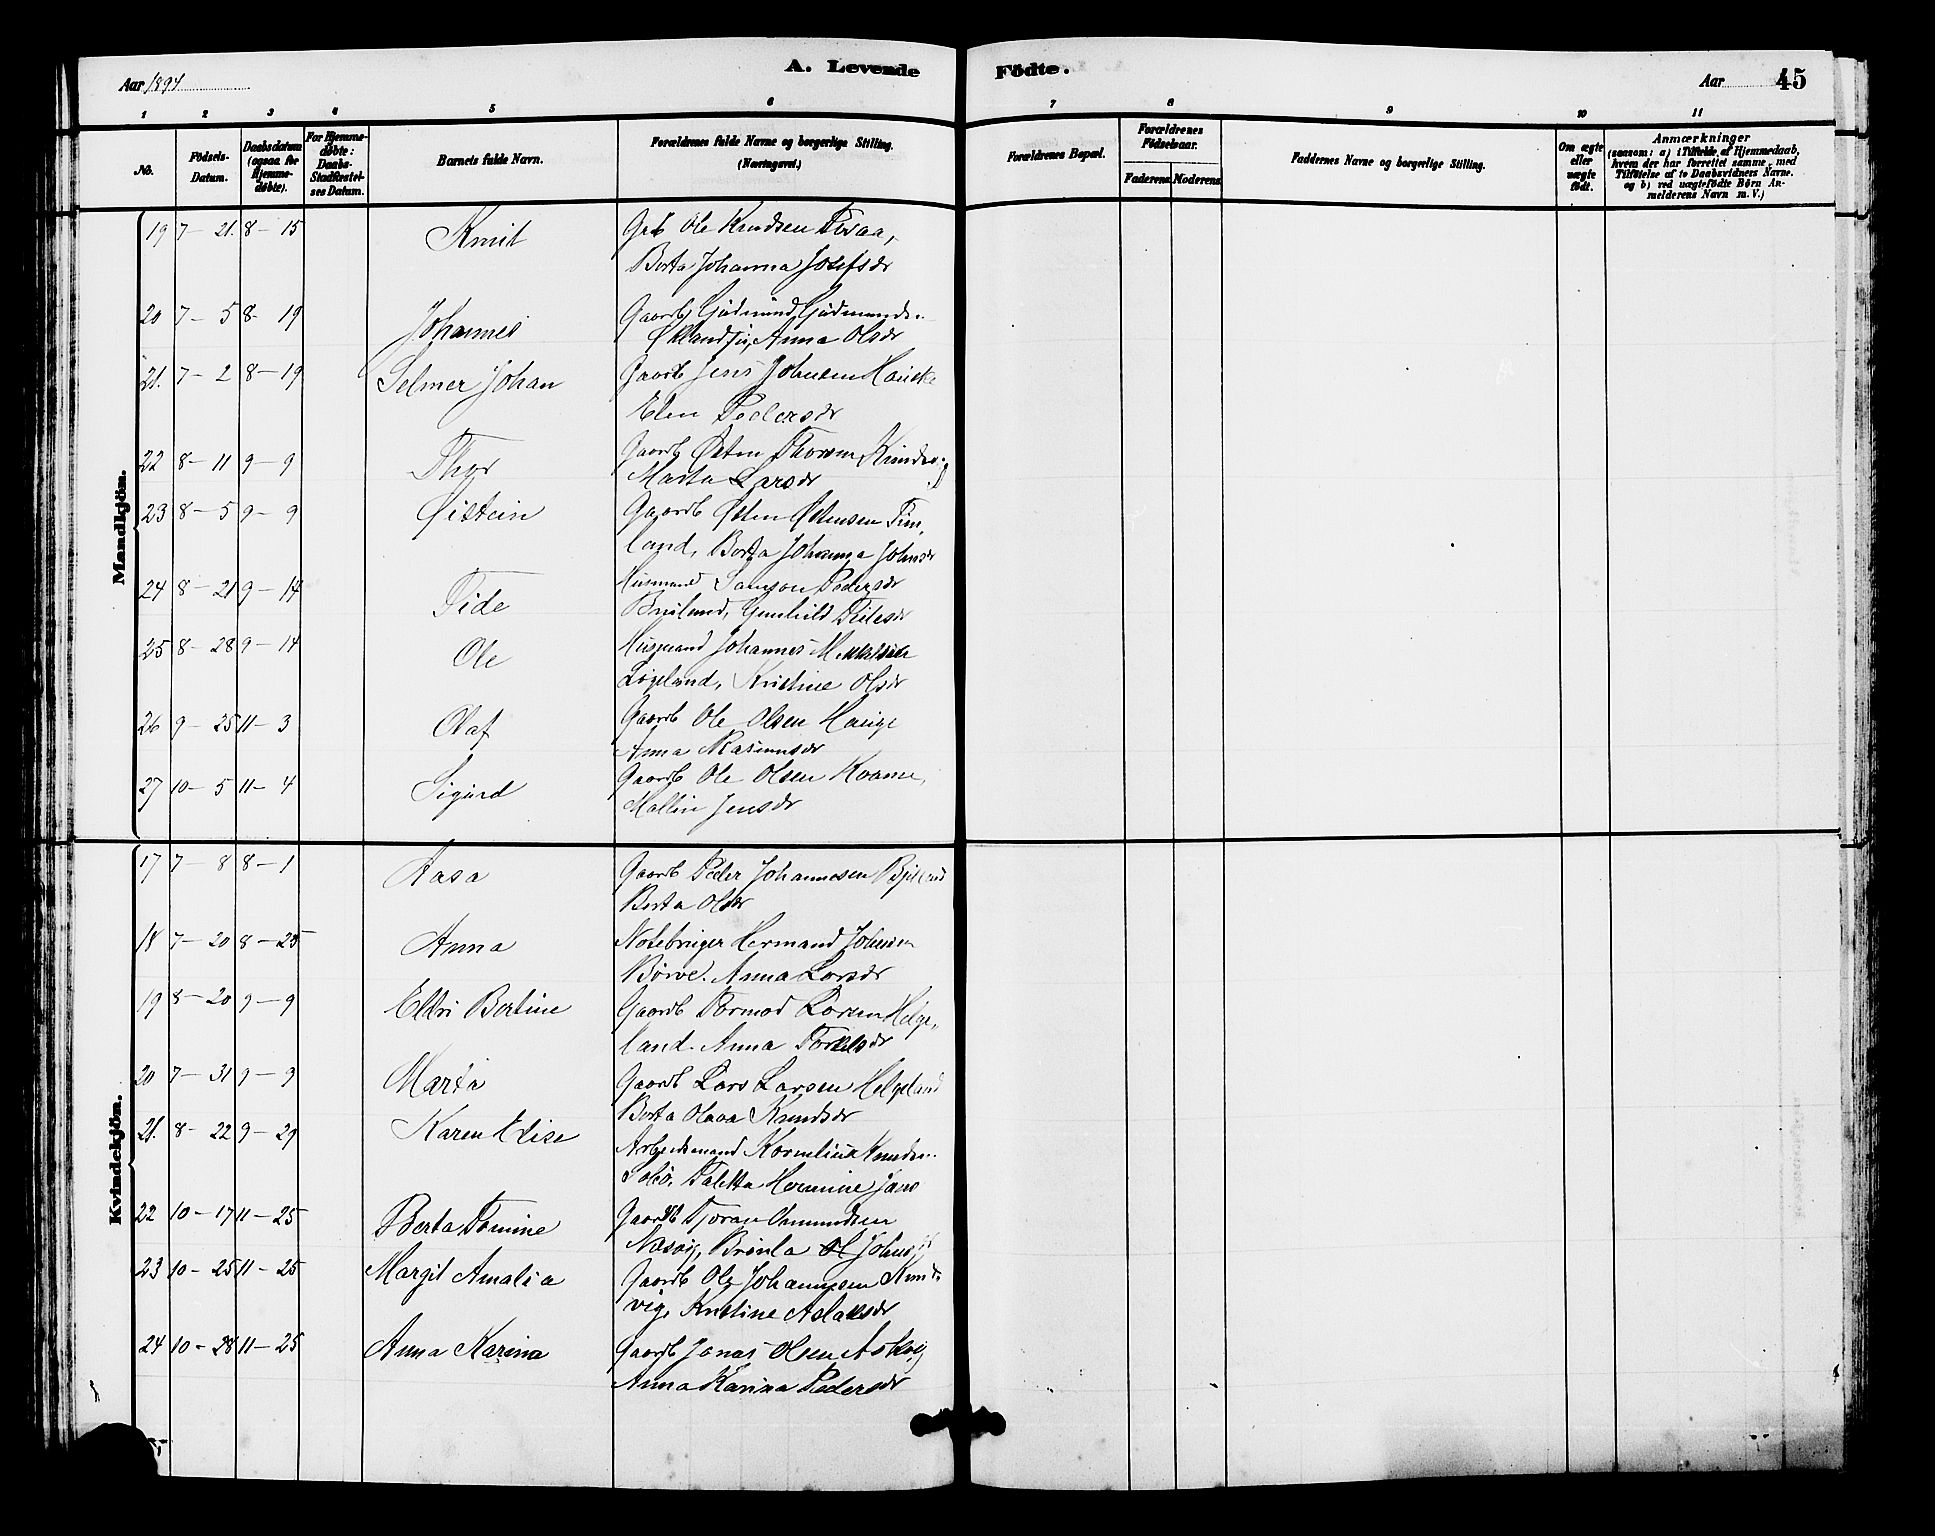 A. Levende
Aar 1894
1 2 3 4 5 6
No.
Födsels-Datum.
Daabsdatum (ogsaa for Hjemme-døbte).
For Hjemme-døbte: Daabs-Stadfæstel-ses Datum.
Barnets fulde Navn.
Forældrenes fulde Navne og borgerlige Stilling. (Næringsvei.)
Mandkjön.
19 7-21. 8-15 Knut Ole Knudsen
Berta Johanna Josefsdr
20 7-5 8-19 Johannes Gaardb Gudmund Gudmunds.
Anna Olsdr
21. 7-2 8-19 Selmer Johan Gaardb Jens Johnsen
Elen Pedersdr
22 8-11 9-9 Thor Gaardb Østen Thorsen
Marta Larsdr
23 8-5 9-9 Øistein Gaardb Østen Østensen Tim-
land, Berta Johanna Johnsdr
24 8-21 9-14 Tide Husmand Samson
Gunhild
25 8-28 9-14 Ole Husmand Johannes
Kristine Olsdr
26 9-25 11-3 Olaf Gaardb Ole Olsen Hauge
Anna Rasmusdr
27 10-5 11-4 Sigurd Gaardb Ole Olsen Kvame,
Mallin Jensdr
Kvindekjön.
17 7-8 8-1 Aasa Gaardb Peder Johannesen
Berta Olsdr
18 7-20 8-25 Anna Notebruger Hermand Johnsen
Börve. Anna Larsdr
19 8-20 9-9 Eldri Bertine Gaardb Tormod Larsen Helge-
land. Anna Torkelsdr
20 7-31 9-9 Marta Gaardb Lars Larsen Helgeland
Berta Olava Knudsdr
21. 8-22 9-29 Karen Elise Arbeidsmand Kornelius Knudsen
Taletta Hermine Jans
22 10-17 11-25 Berta Tomine Gaardb Tjøran Osmundsen
Johns
23 10-25 11-25 Margit Amalia Gaardb Ole Johannesen
vig, Kristine Aslaksdr
24 10-28 11-25 Anna Karina Gaardb Jonas Olsen Askvig
Anna Karina Pedersdr
Födte.
Aar 45
7 8 9 10 11
Forældrenes Bopæl.
Forældrenes Födselsaar.
Faderens. Moderens.
Faddernes Navne og borgerlige Stilling.
Om ægte eller uægte födt.
Anmærkninger
(saasom: a) i Tilfælde af Hjemmedaab,
hvem der har forrettet samme, med
Tilföielse af to Daabsvidners Navne.
og b) ved uægtefödte Börn An-
melderens Navn m. V.)